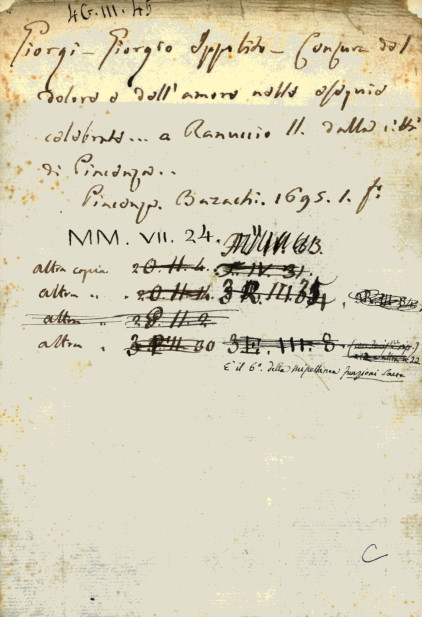 4G.III.45
Giorgi - Giorgio Ippolito - Congiura del
dolore e dell'amore nelle esequie
celebrate... a Ranuccio II. dalla città
di Piacenza..
Piacenza. Bazachi. 1695. 1. fº
MM. VII. 24.
altra copia 2O.II.4. IV 31.
altra " 2O.II.14. 3R.III.35
altra " 2P.II.2
altra " 30 3E.III.8.
È il 6º della miscellanea funzioni sacre
C